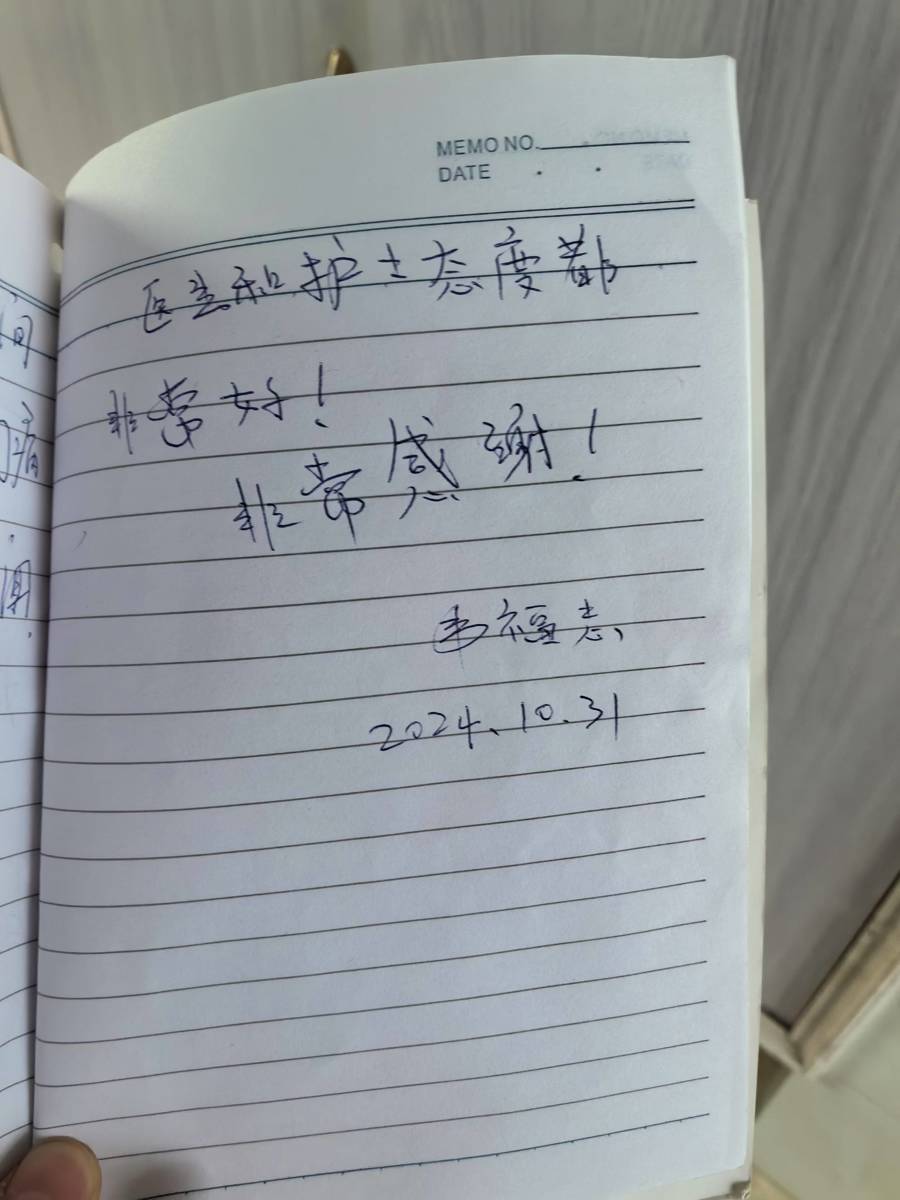 MEMO NO.
DATE . .
医生和护士态度都
非常好！
非常感谢！
福志
2024.10.31
间
病